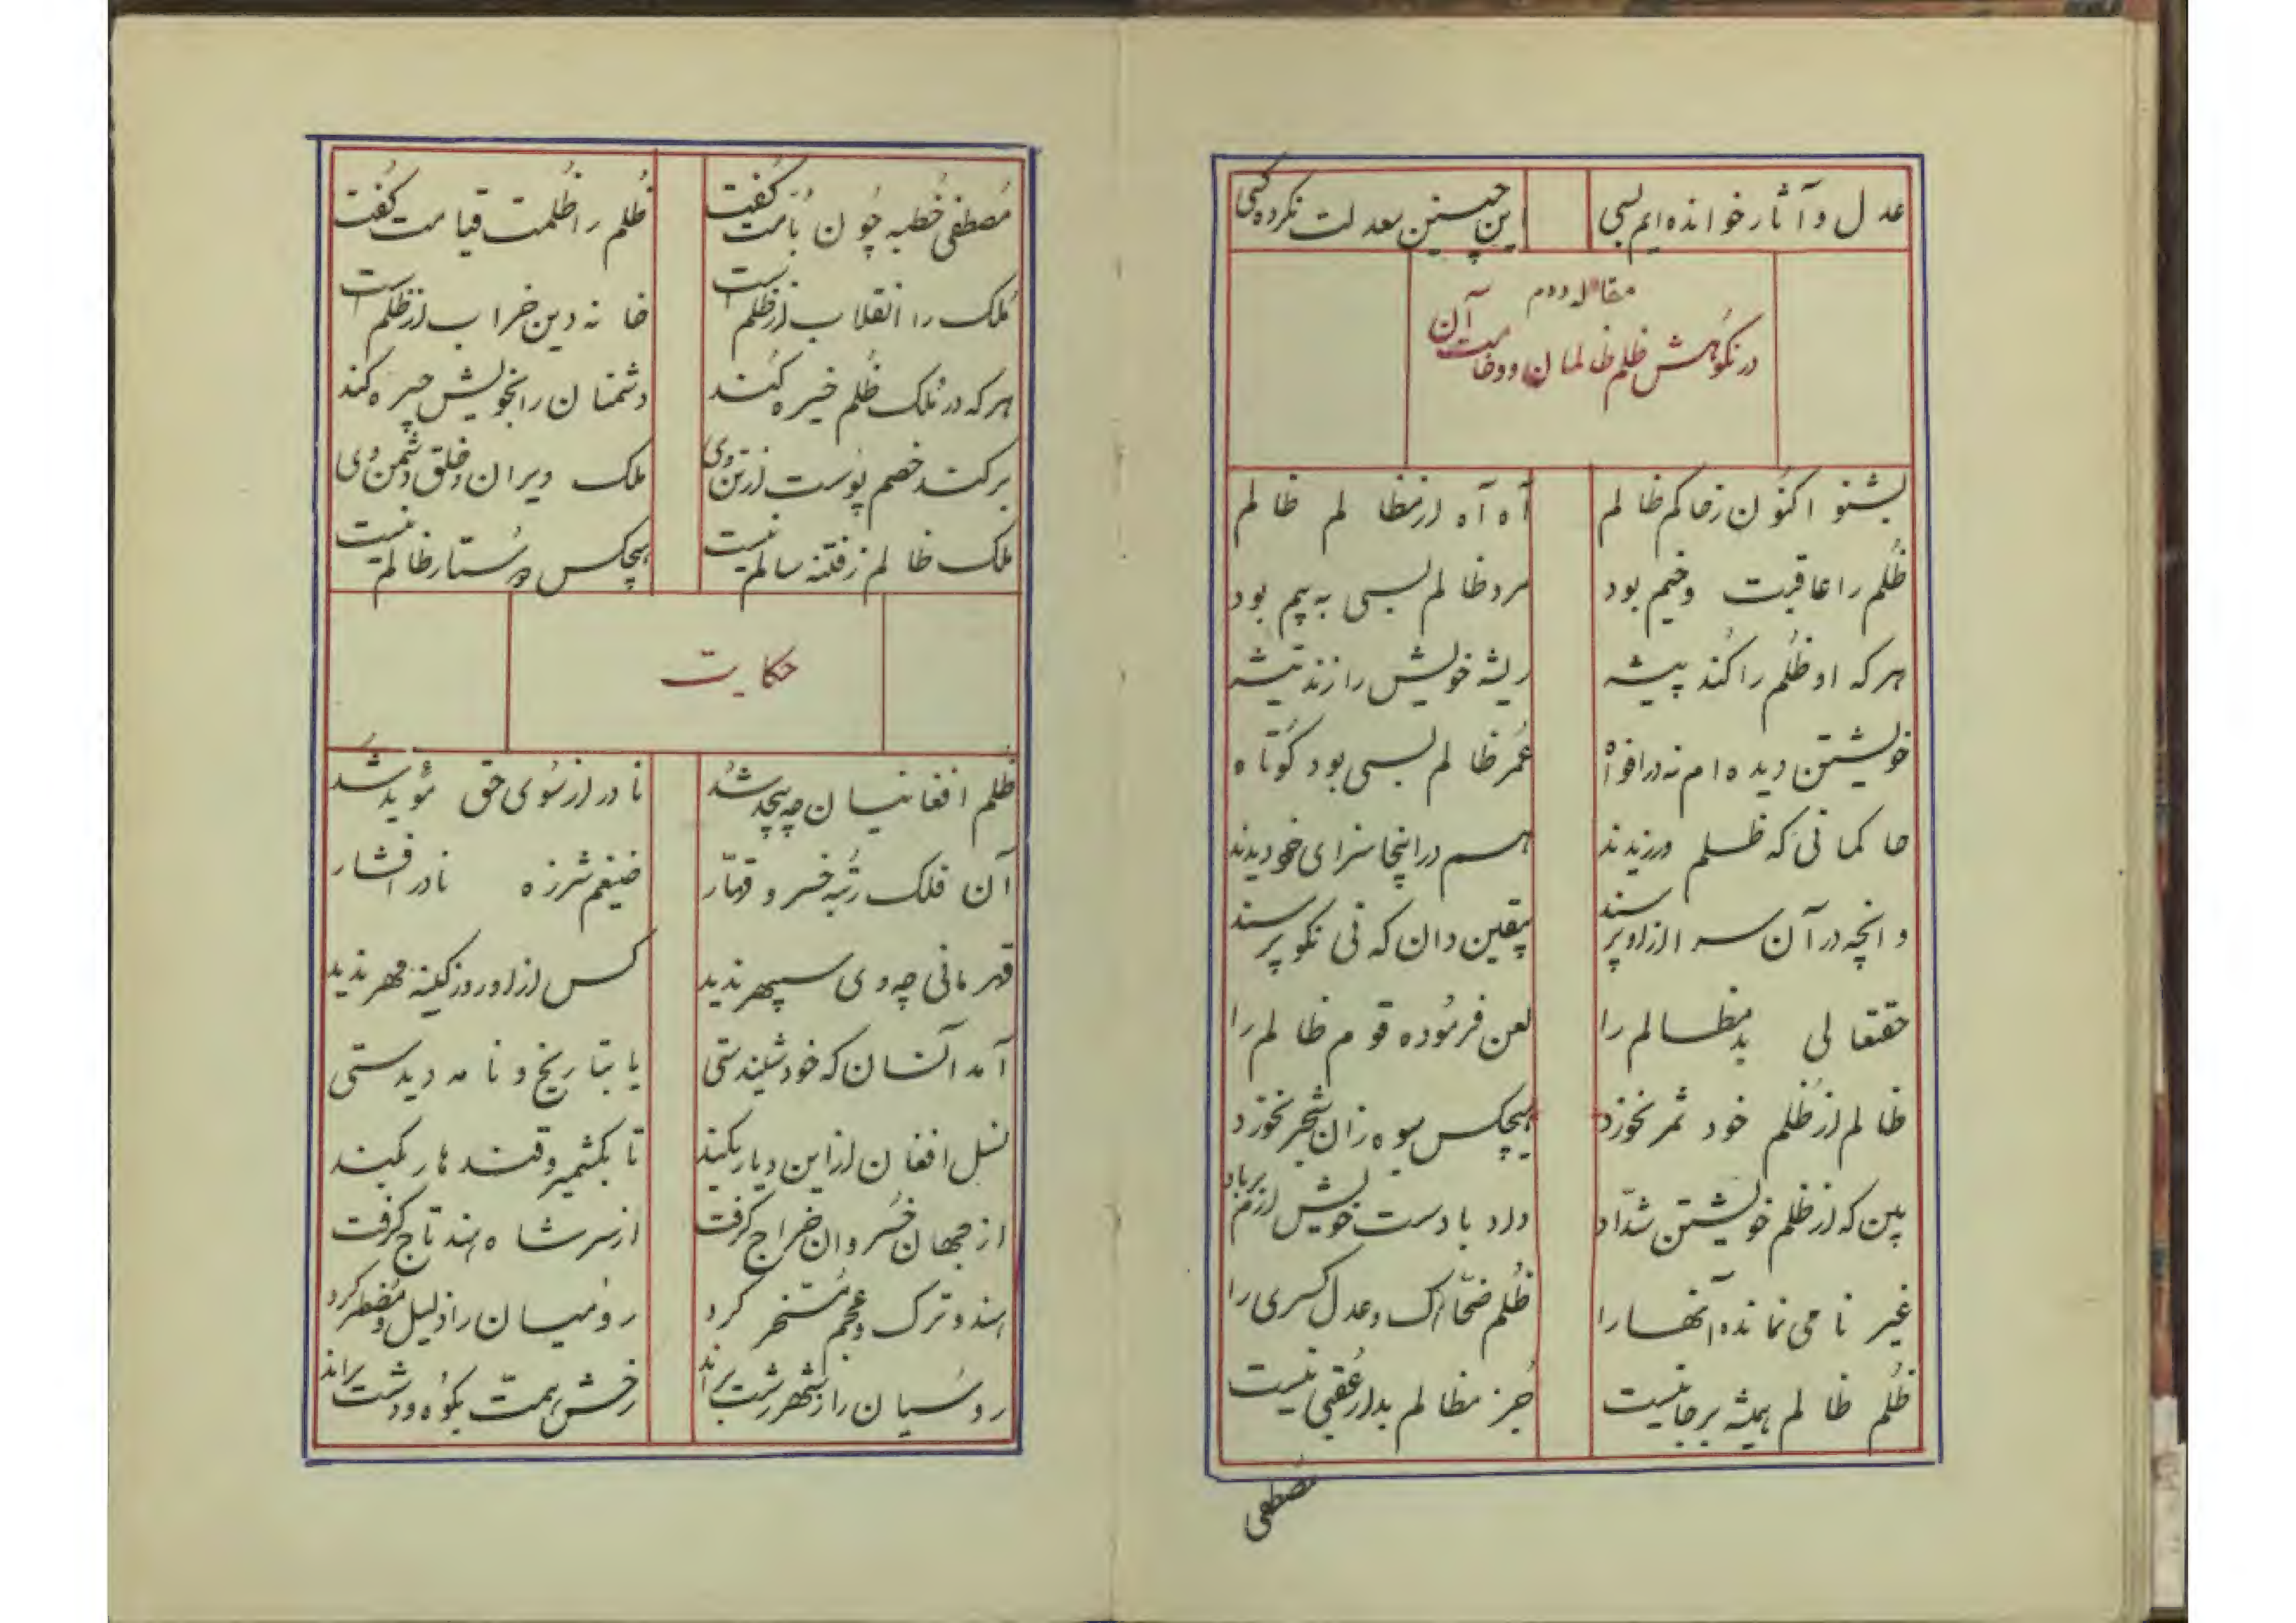 عدل و آثار خوانده ایم بسی    این چنین معدلت نکرده کسی
مقاله دوم
در نکوهش ظلم ظالمان و وخامت آن
بشنو اکنون ز حاکم ظالم    آه آه از مظالم ظالم
ظلم را عاقبت وخیم بود    مرد ظالم بسی به بیم بود
هر که او ظلم را کند پیشه    ریشه خویش را زند تیشه
خویشتن دیده ام نه در افواه    عمر ظالم بسی بود کوتاه
حاکمانی که ظلم ورزیدند    هم در اینجا سزای خود دیدند
وانچه در آن سرا از او پرسند    یقین دان که نی نکو پرسند
حقتعالی بد مظالم را    لعن فرموده قوم ظالم را
ظالم از ظلم خود ثمر نخورد    هیچکس میوه زان شجر نخورد
بین که از ظلم خویشتن شدّاد    داد با دست خویش ارم بر باد
غیر نامی نمانده آنها را    ظلم ضحّاک و عدل کسری را
ظلم ظالم همیشه برجا نیست    جز مظالم بدار عقبی نیست
مصطفی
مُصطفی خُطبه چُون بامت گُفت    ظُلم را ظُلمت قیامت گُفت
مُلک را انقلاب از ظلم است    خانه دین خراب از ظلم است
هر که در مُلک ظُلم خیره کُند    دشمنان را بخویش چیره کند
برکند خصم پوست از تن وی    ملک ویران و خلق دشمن وی
ملک ظالم ز فتنه سالم نیست    هیچکس دوستار ظالم نیست
حکایت
ظلم افغانیان چه بیحد شد    نادر از سُوی حق مُؤید شد
آن فلک رُتبه خسرو قهّار    ضیغم شرزه نادر افشار
قهرمانی چه وی سپهر ندید    کس از او روز کینه مهر ندید
آمد آنسان که خود شنیدستی    یا بتاریخ و نامه دیدستی
نسل افغان از این دیار بکند    تا بکشمیر و قندهار کمند
از جهان خسروان خراج گرفت    از سر شاه هند تاج گرفت
هند و ترک و عجم مُسخّر کرد    رومیان را ذلیل و مُضطر کرد
روسیان را ز شهر رشت براند    رخش همّت بکوه و دشت براند